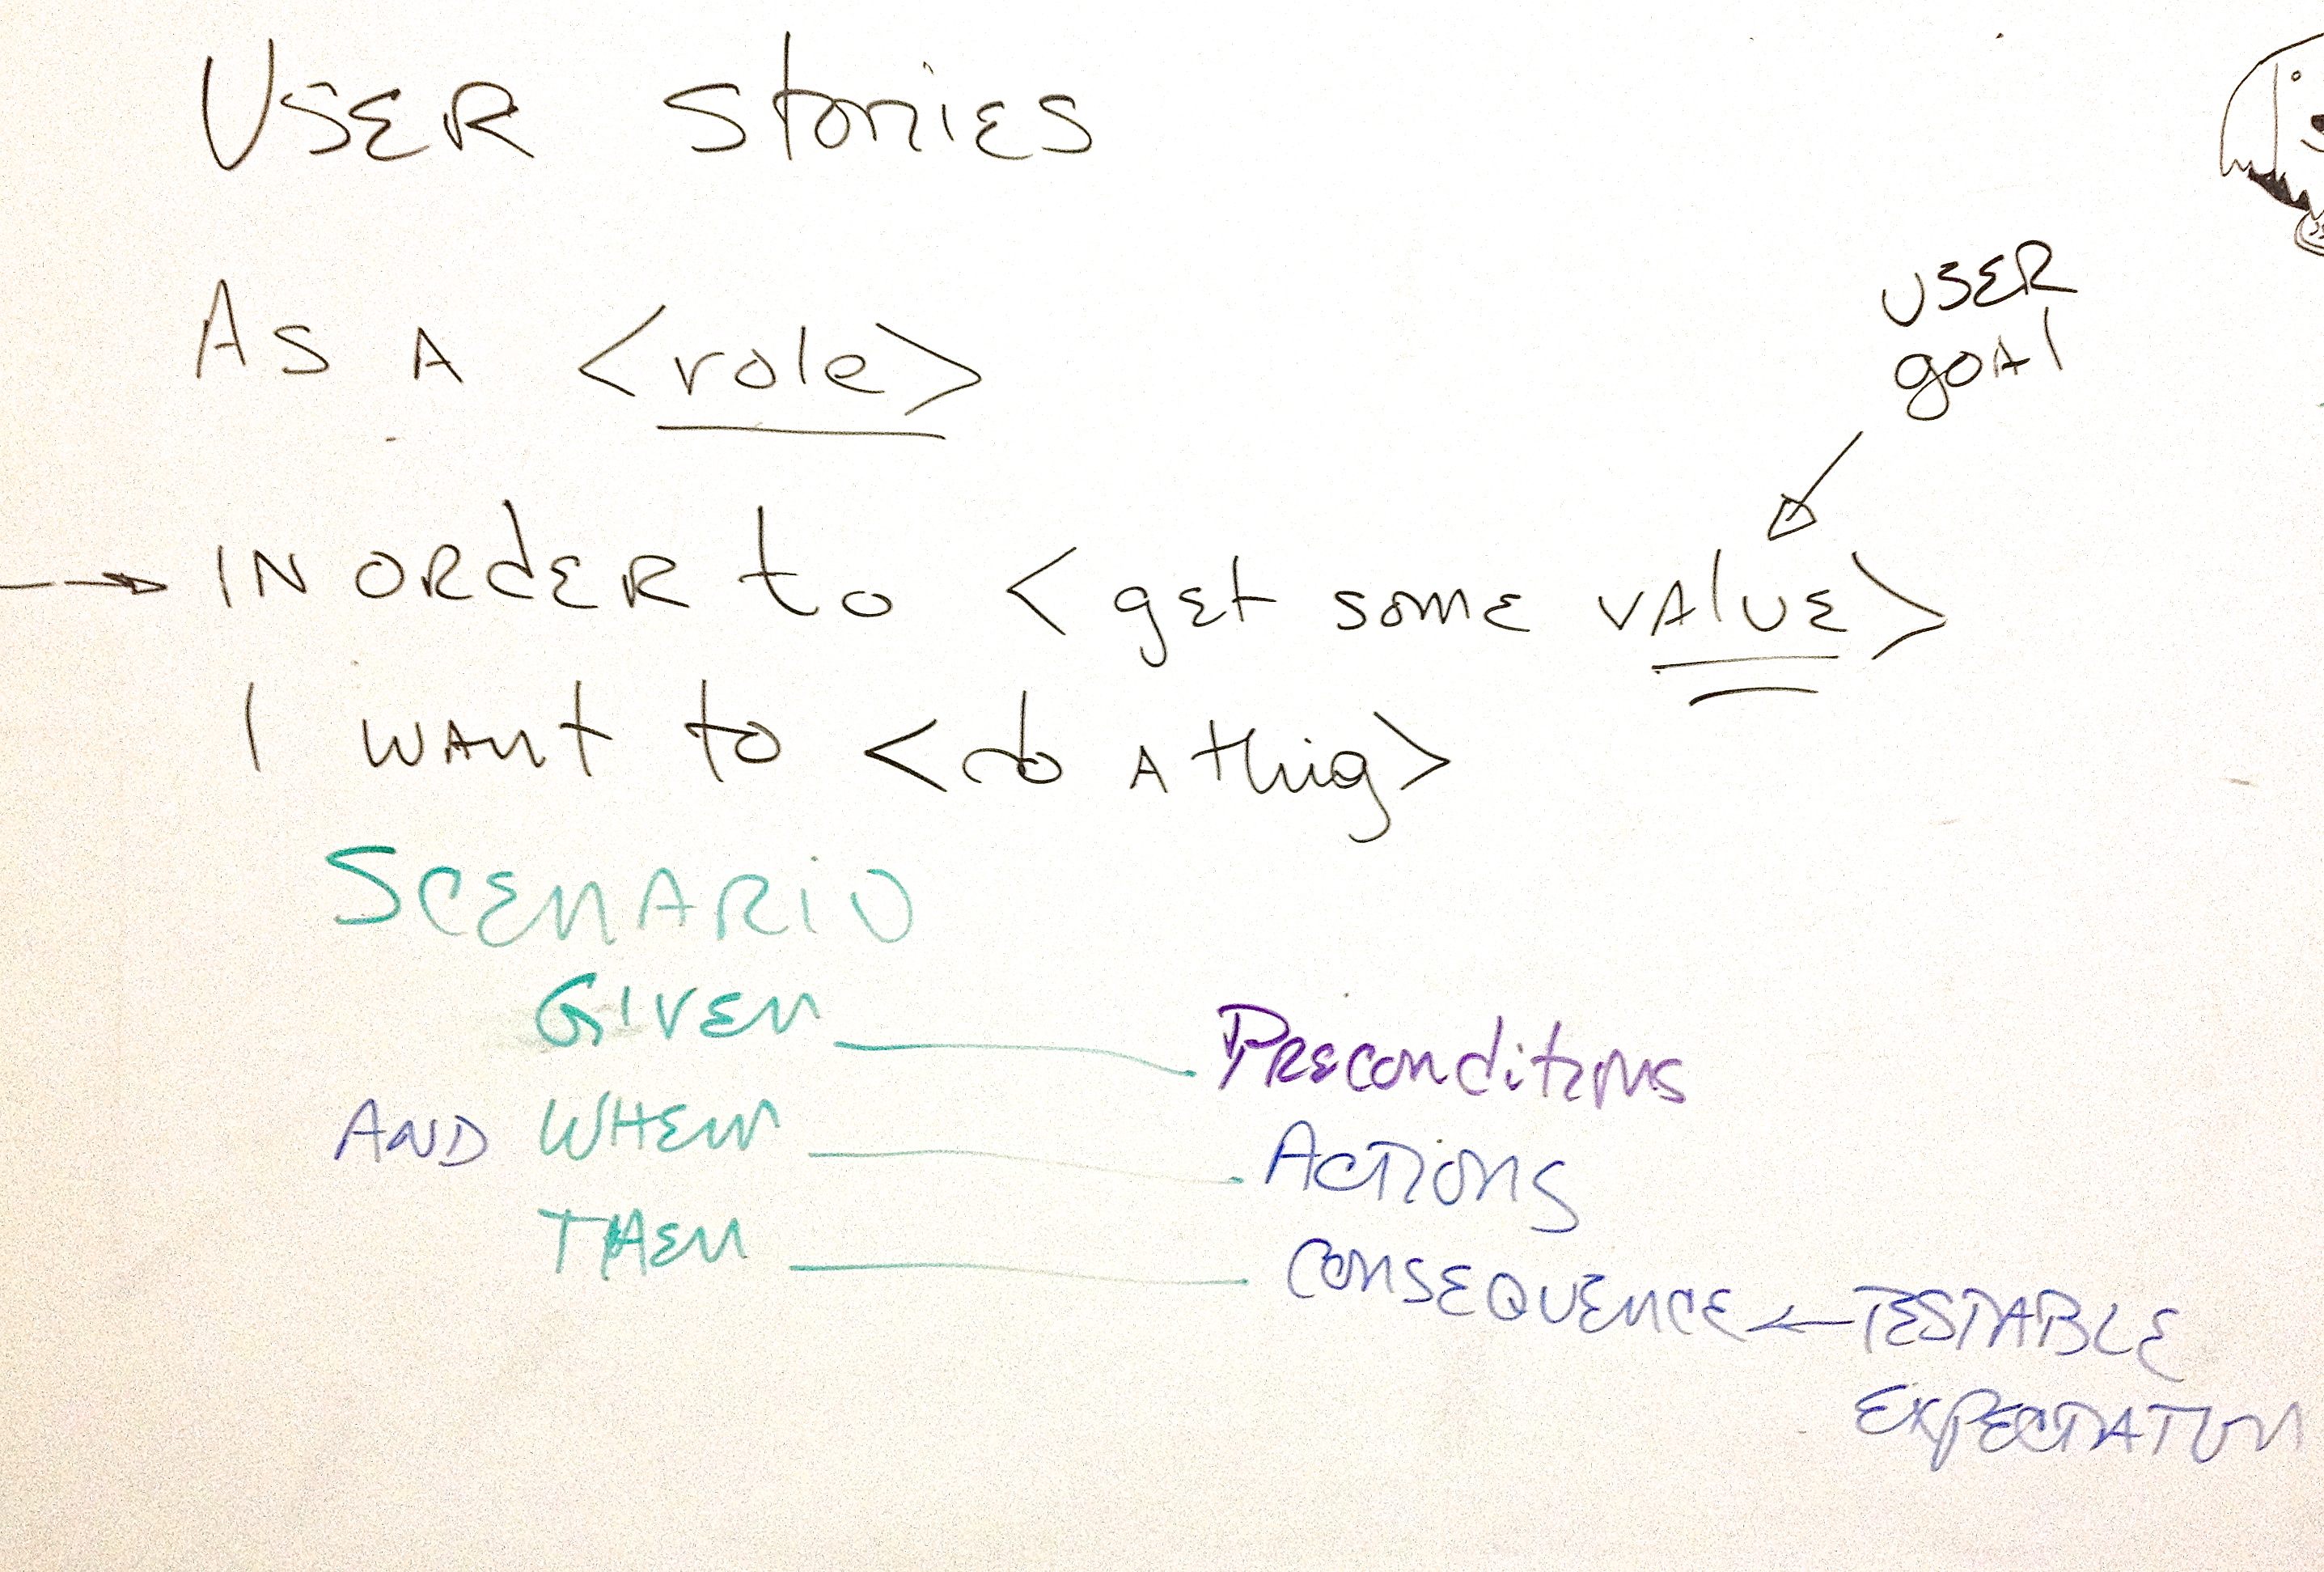 USER stories
As A <role>
USER
goAl
IN ORdER to <gEt somE vAlUE>
I wAnt to <do A thig>
SCENARiO
GIVEN Preconditions
AND WHEN ACTIONS
THEN CONSEQUENCE TESTABLE
EXPECTATION